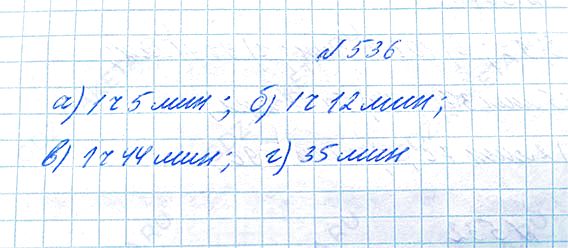 №536
а) 1ч 5 мин; б) 1ч 12 мин;
в) 1ч 44 мин; г) 35 мин